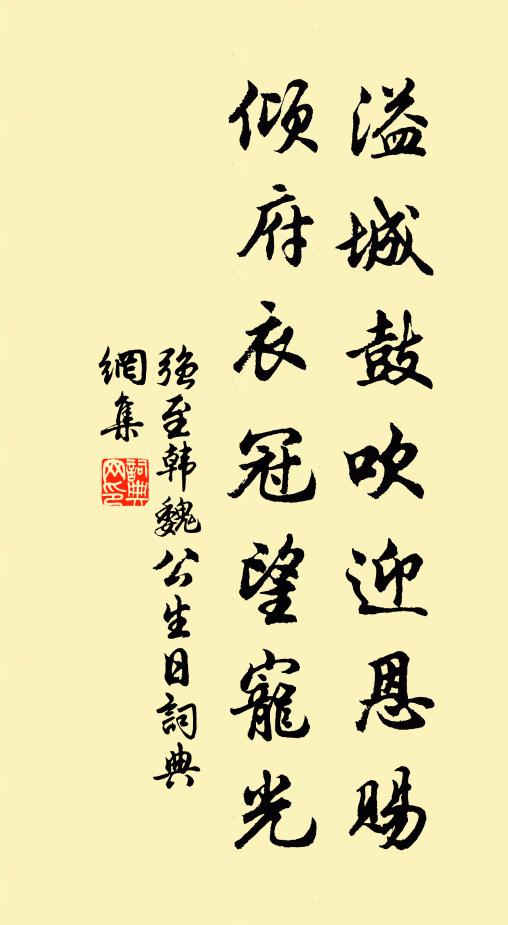 溢城鼓吹迎恩賜
傾府衣冠望寵光
強至韩魏公生日詞典
網集
詞典
网印